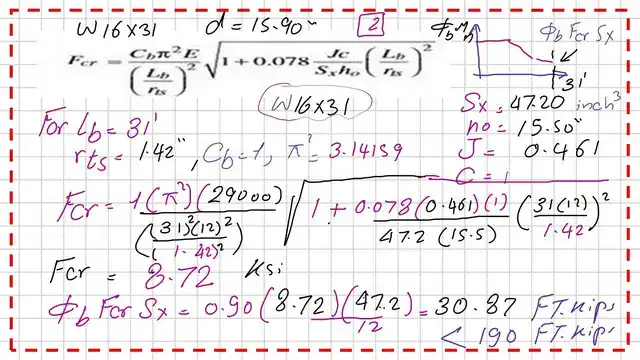 W16x31 d = 15.90" 2
Fcr = Cbπ²E / (Lb/rts)² √(1 + 0.078 Jc/(Sxho) (Lb/rts)²)
ϕbMn ϕb Fcr Sx
31'
W16x31
For Lb = 31'
rts = 1.42", Cb = 1, π² = 3.14159
Sx = 47.20 inch³
ho = 15.50"
J = 0.461
C = 1
Fcr = 1(π²)(29000) / ((31)²(12)²/(1.42)²) √(1 + 0.078(0.461)(1)/(47.2(15.5)) (31(12)/1.42)²)
Fcr = 8.72 ksi
ϕb Fcr Sx = 0.90(8.72)(47.2)/12 = 30.87 FT.kips
< 190 FT.kips